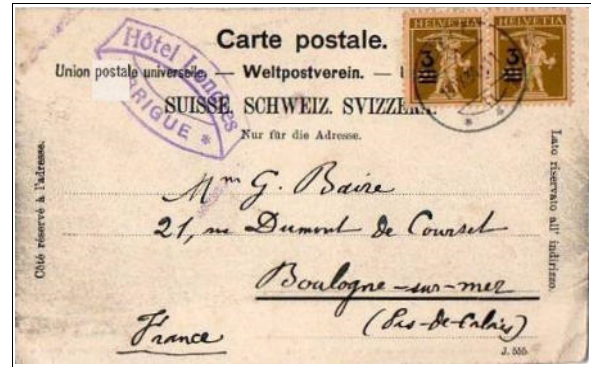 Carte postale.
HELVETIA HELVETIA
3 3
Hôtel Londres
BRIGUE *
Union postale universelle. — Weltpostverein. —
SUISSE. SCHWEIZ. SVIZZERA.
Nur für die Adresse.
Côté réservé à l'adresse.
Lato riservato all' indirizzo.
G. Baire
21, rue Dumont de Courset
Boulogne-sur-mer
(Pas-de-Calais)
France
J. 555